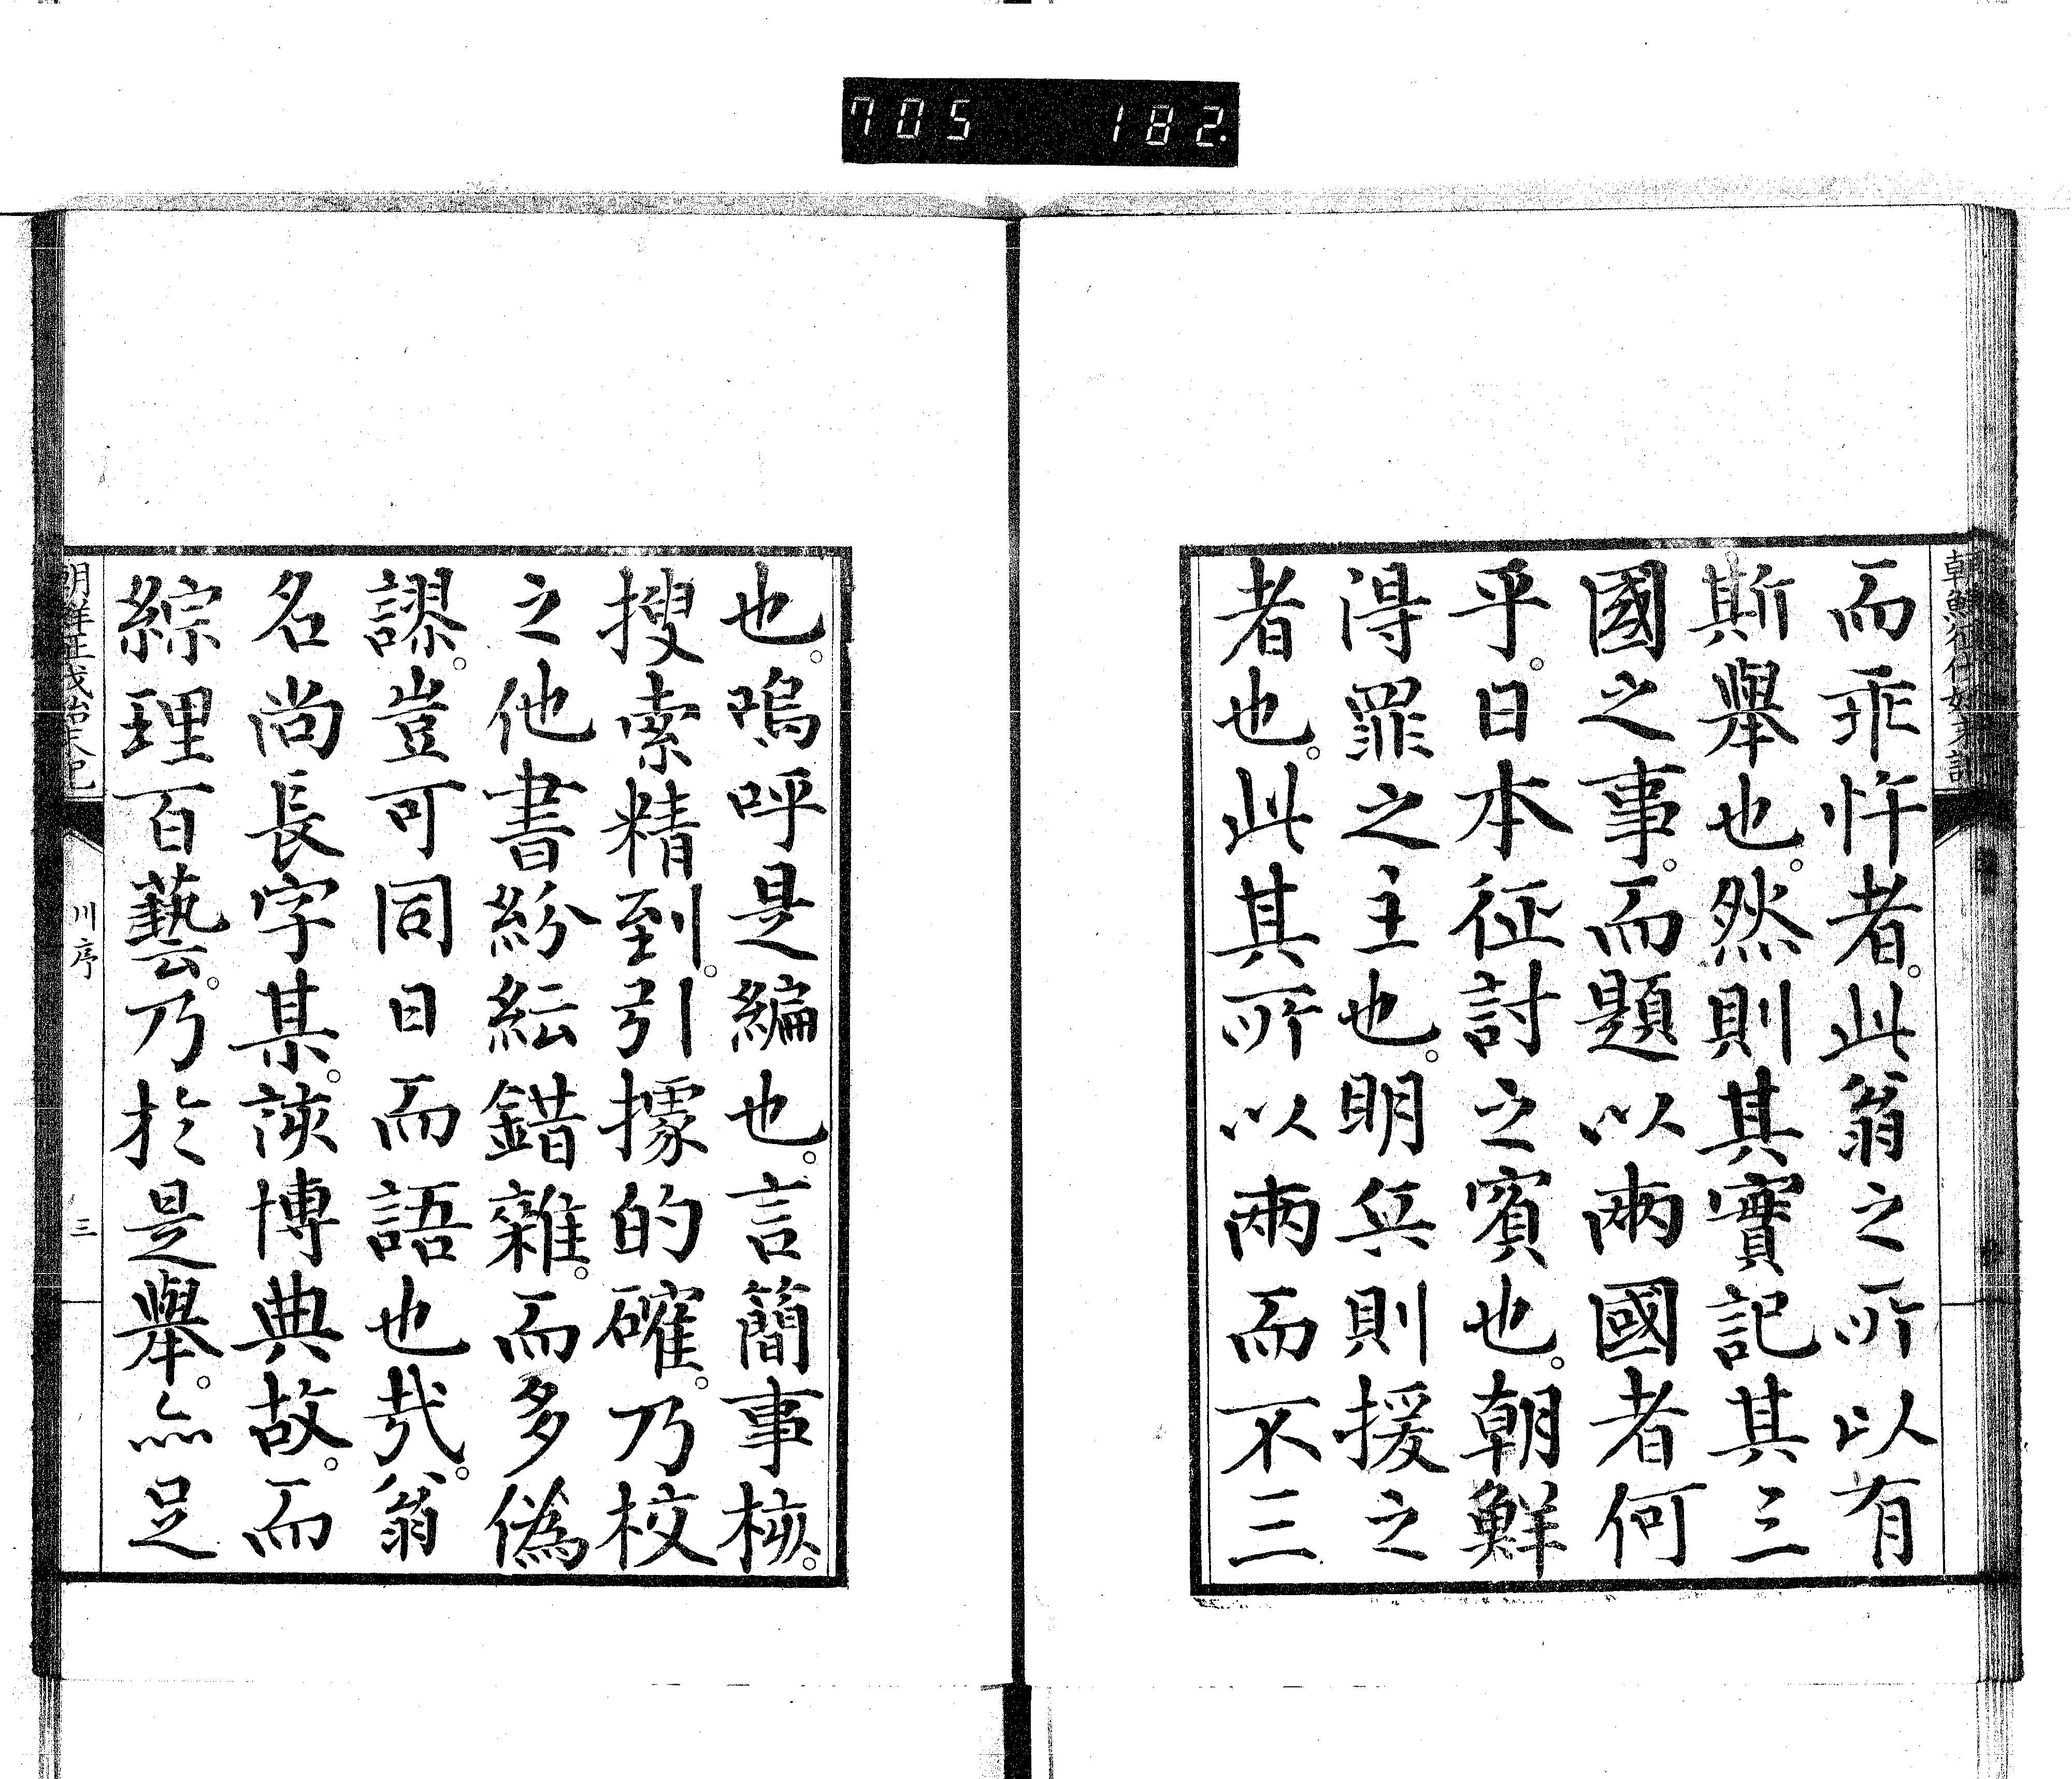 705 182.
而乖忤者。此翁之所以有
斯舉也。然則其實記其三
國之事。而題以兩國者何
乎。日本征討之賓也。朝鮮
得罪之主也。明兵則援之
者也。此其所以兩而不三
也。嗚呼是編也。言簡事核。
搜索精到。引據的確。乃校
之他書紛紜錯雜。而多偽
謬。豈可同日而語也哉。翁
名尚長字某。該博典故。而
綜理百藝。乃於是舉。亦足
川序
三